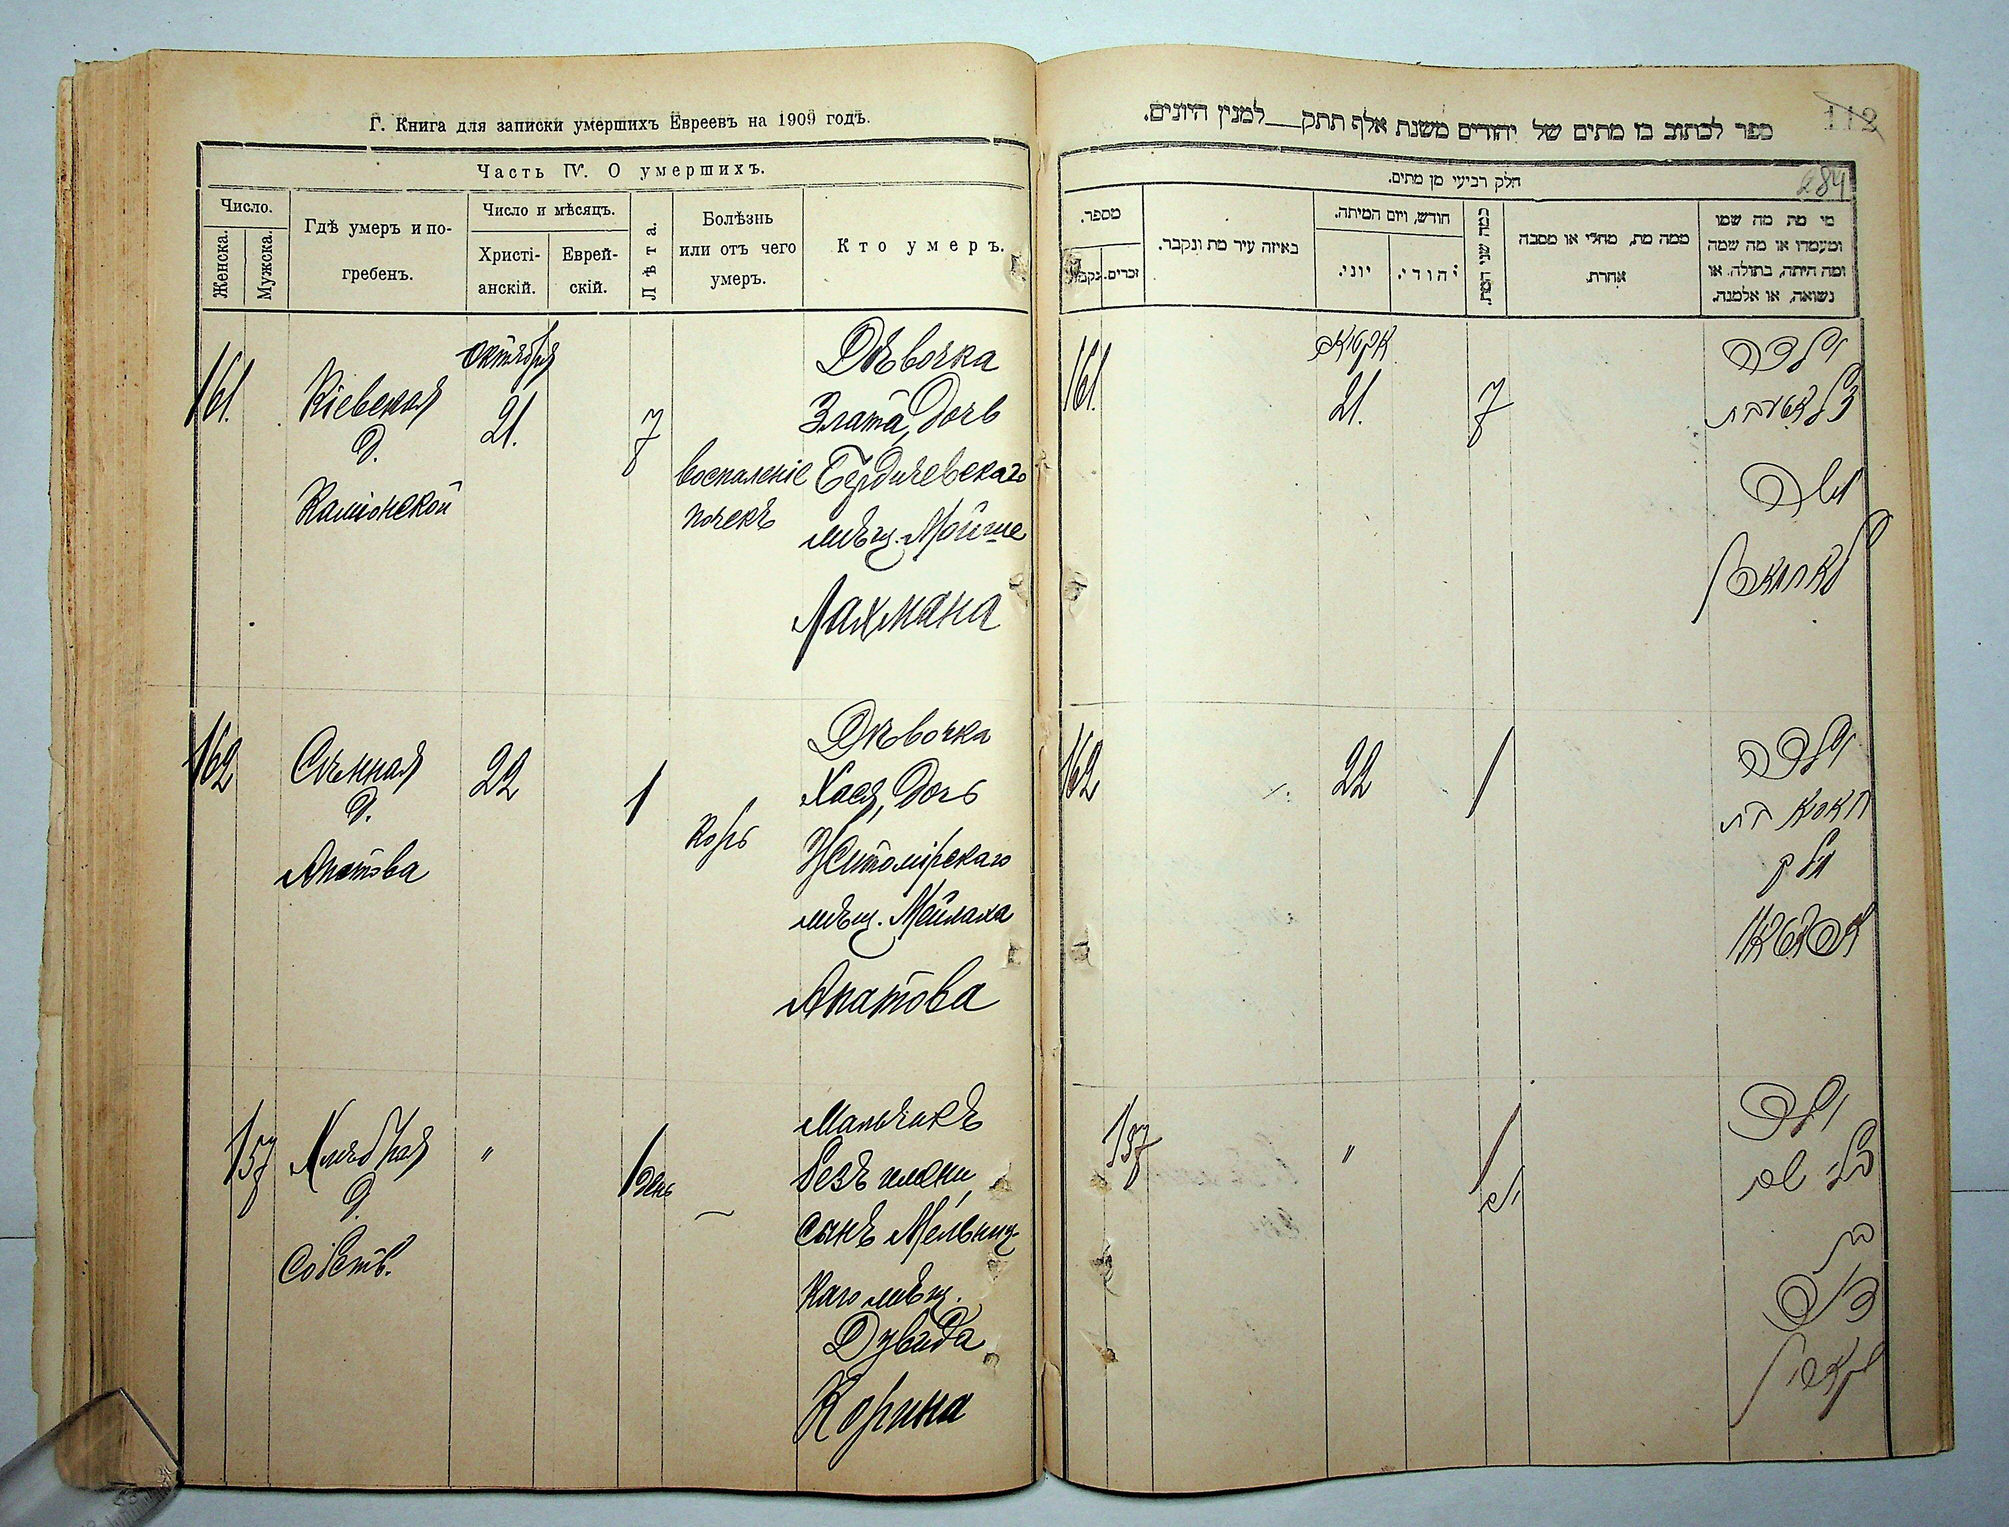 Г. Книга для записки умершихъ Евреевъ на 1909 годъ.
Часть IV. О умершихъ.
Число.
Женска.
Мужска.
Гдѣ умеръ и по-
гребенъ.
Число и мѣсяцъ.
Христі-
анскій.
Еврей-
скій.
Лѣта.
Болѣзнь
или отъ чего
умеръ.
Кто умеръ.
161.
Кіевская
д.
Каліонской
октября
21.
7
воспаленіе
почекъ
Дѣвочка
Злата, дочь
Бердичевскаго
мѣщ. Мойше
Лахмана
162
Сѣнная
д.
Апатова
22
1
корь
Дѣвочка
Хася, дочь
Житомірскаго
мѣщ. Мейлаха
Апатова
157
Хлѣбная
д.
Собств.
"
1 день
Мальчикъ
безъ имени,
сынъ Мельниц-
каго мѣщ.
Дувида
Корина
112
ספר לכתוב בו מתים של יהודים משנת אלף תתק למנין היונים.
284
חלק רביעי מן מתים.
מספר.
נקבות
זכרים.
באיזה עיר מת ונקבר.
חודש, ויום המיתה.
יוני.
יהודי.
כמה שני המת.
ממה מת, מחלי או מסבה
אחרת.
מי מת מה שמו
ומעמדו או מה שמה
ומה היתה, בתולה, או
נשואה, או אלמנה.
161.
21.
7
ילדה
משה
לאחמאן
162
22
1
ילדה
חאסיא בת
157
"
1
ילד
בלי שם
בן
דוד
קארין